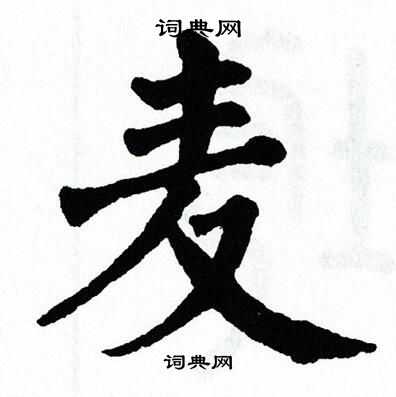 词典网
麦
词典网